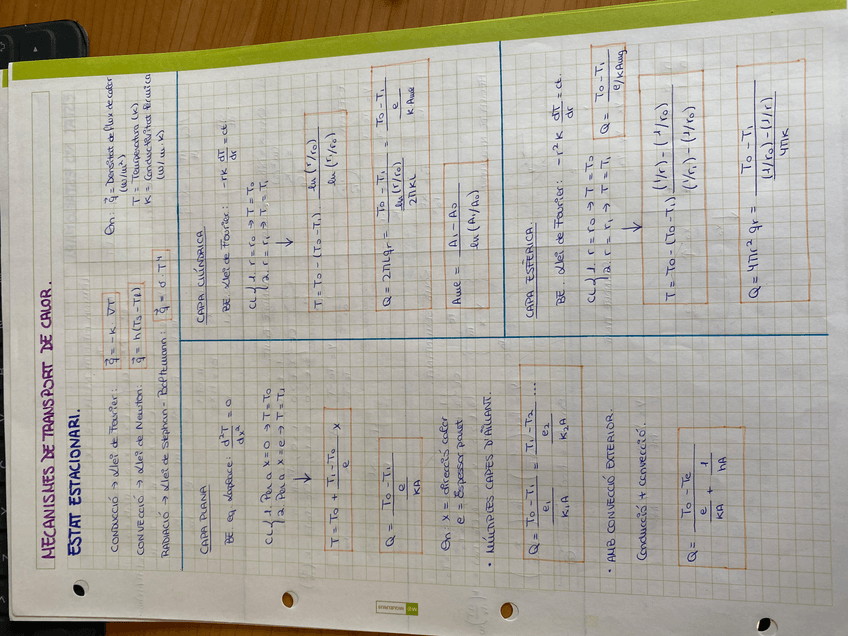 MECANISMES DE TRANSPORT DE CALOR.
ESTAT ESTACIONARI.
CONDUCCIÓ → Llei de Fourier: q⃗ = -K · ∇T
CONVECCIÓ → Llei de Newton: q⃗ = h(Ts - Tf)
RADIACIÓ → Llei de Stephan-Boltzmann: q⃗ = σ · T⁴
On: q⃗ = Densitat de flux de calor
(W/m²)
T = Temperatura (K)
K = Conductivitat tèrmica
(W/m·K)
CAPA PLANA
BE eq. Laplace: d²T/dx² = 0
CL { 1. Per a x=0 → T=T0
2. Per a x=e → T=T1
↓
T = T0 + (T1-T0)/e x
Q = (T0-T1)/(e/KA)
On x = direcció calor
e = Espessor paret
• MÚLTIPLES CAPES D'AÏLLANT.
Q = (T0-T1)/(e1/K1A) = (T1-T2)/(e2/K2A) ...
• AMB CONVECCIÓ EXTERIOR.
Conducció + convecció.
Q = (T0-Te)/(e/KA + 1/hA)
CAPA CILÍNDRICA
BE Llei de Fourier: -rK dT/dr = ct.
CL { 1. r=r0 → T=T0
2. r=r1 → T=T1
↓
T = T0 - (T0-T1) ln(r/r0)/ln(r1/r0)
Q = 2πLqr = (T0-T1)/(ln(r1/r0)/2πKL) = (T0-T1)/(e/K Aml)
Aml = (A1-A0)/ln(A1/A0)
CAPA ESFÈRICA.
BE Llei de Fourier: -r²K dT/dr = ct.
CL { 1. r=r0 → T=T0
2. r=r1 → T=T1
↓
Q = (T0-T1)/(e/KAmg)
T = T0 - (T0-T1) ((1/r)-(1/r0))/((1/r1)-(1/r0))
Q = 4πr² qr = (T0-T1)/(((1/r0)-(1/r1))/4πK)